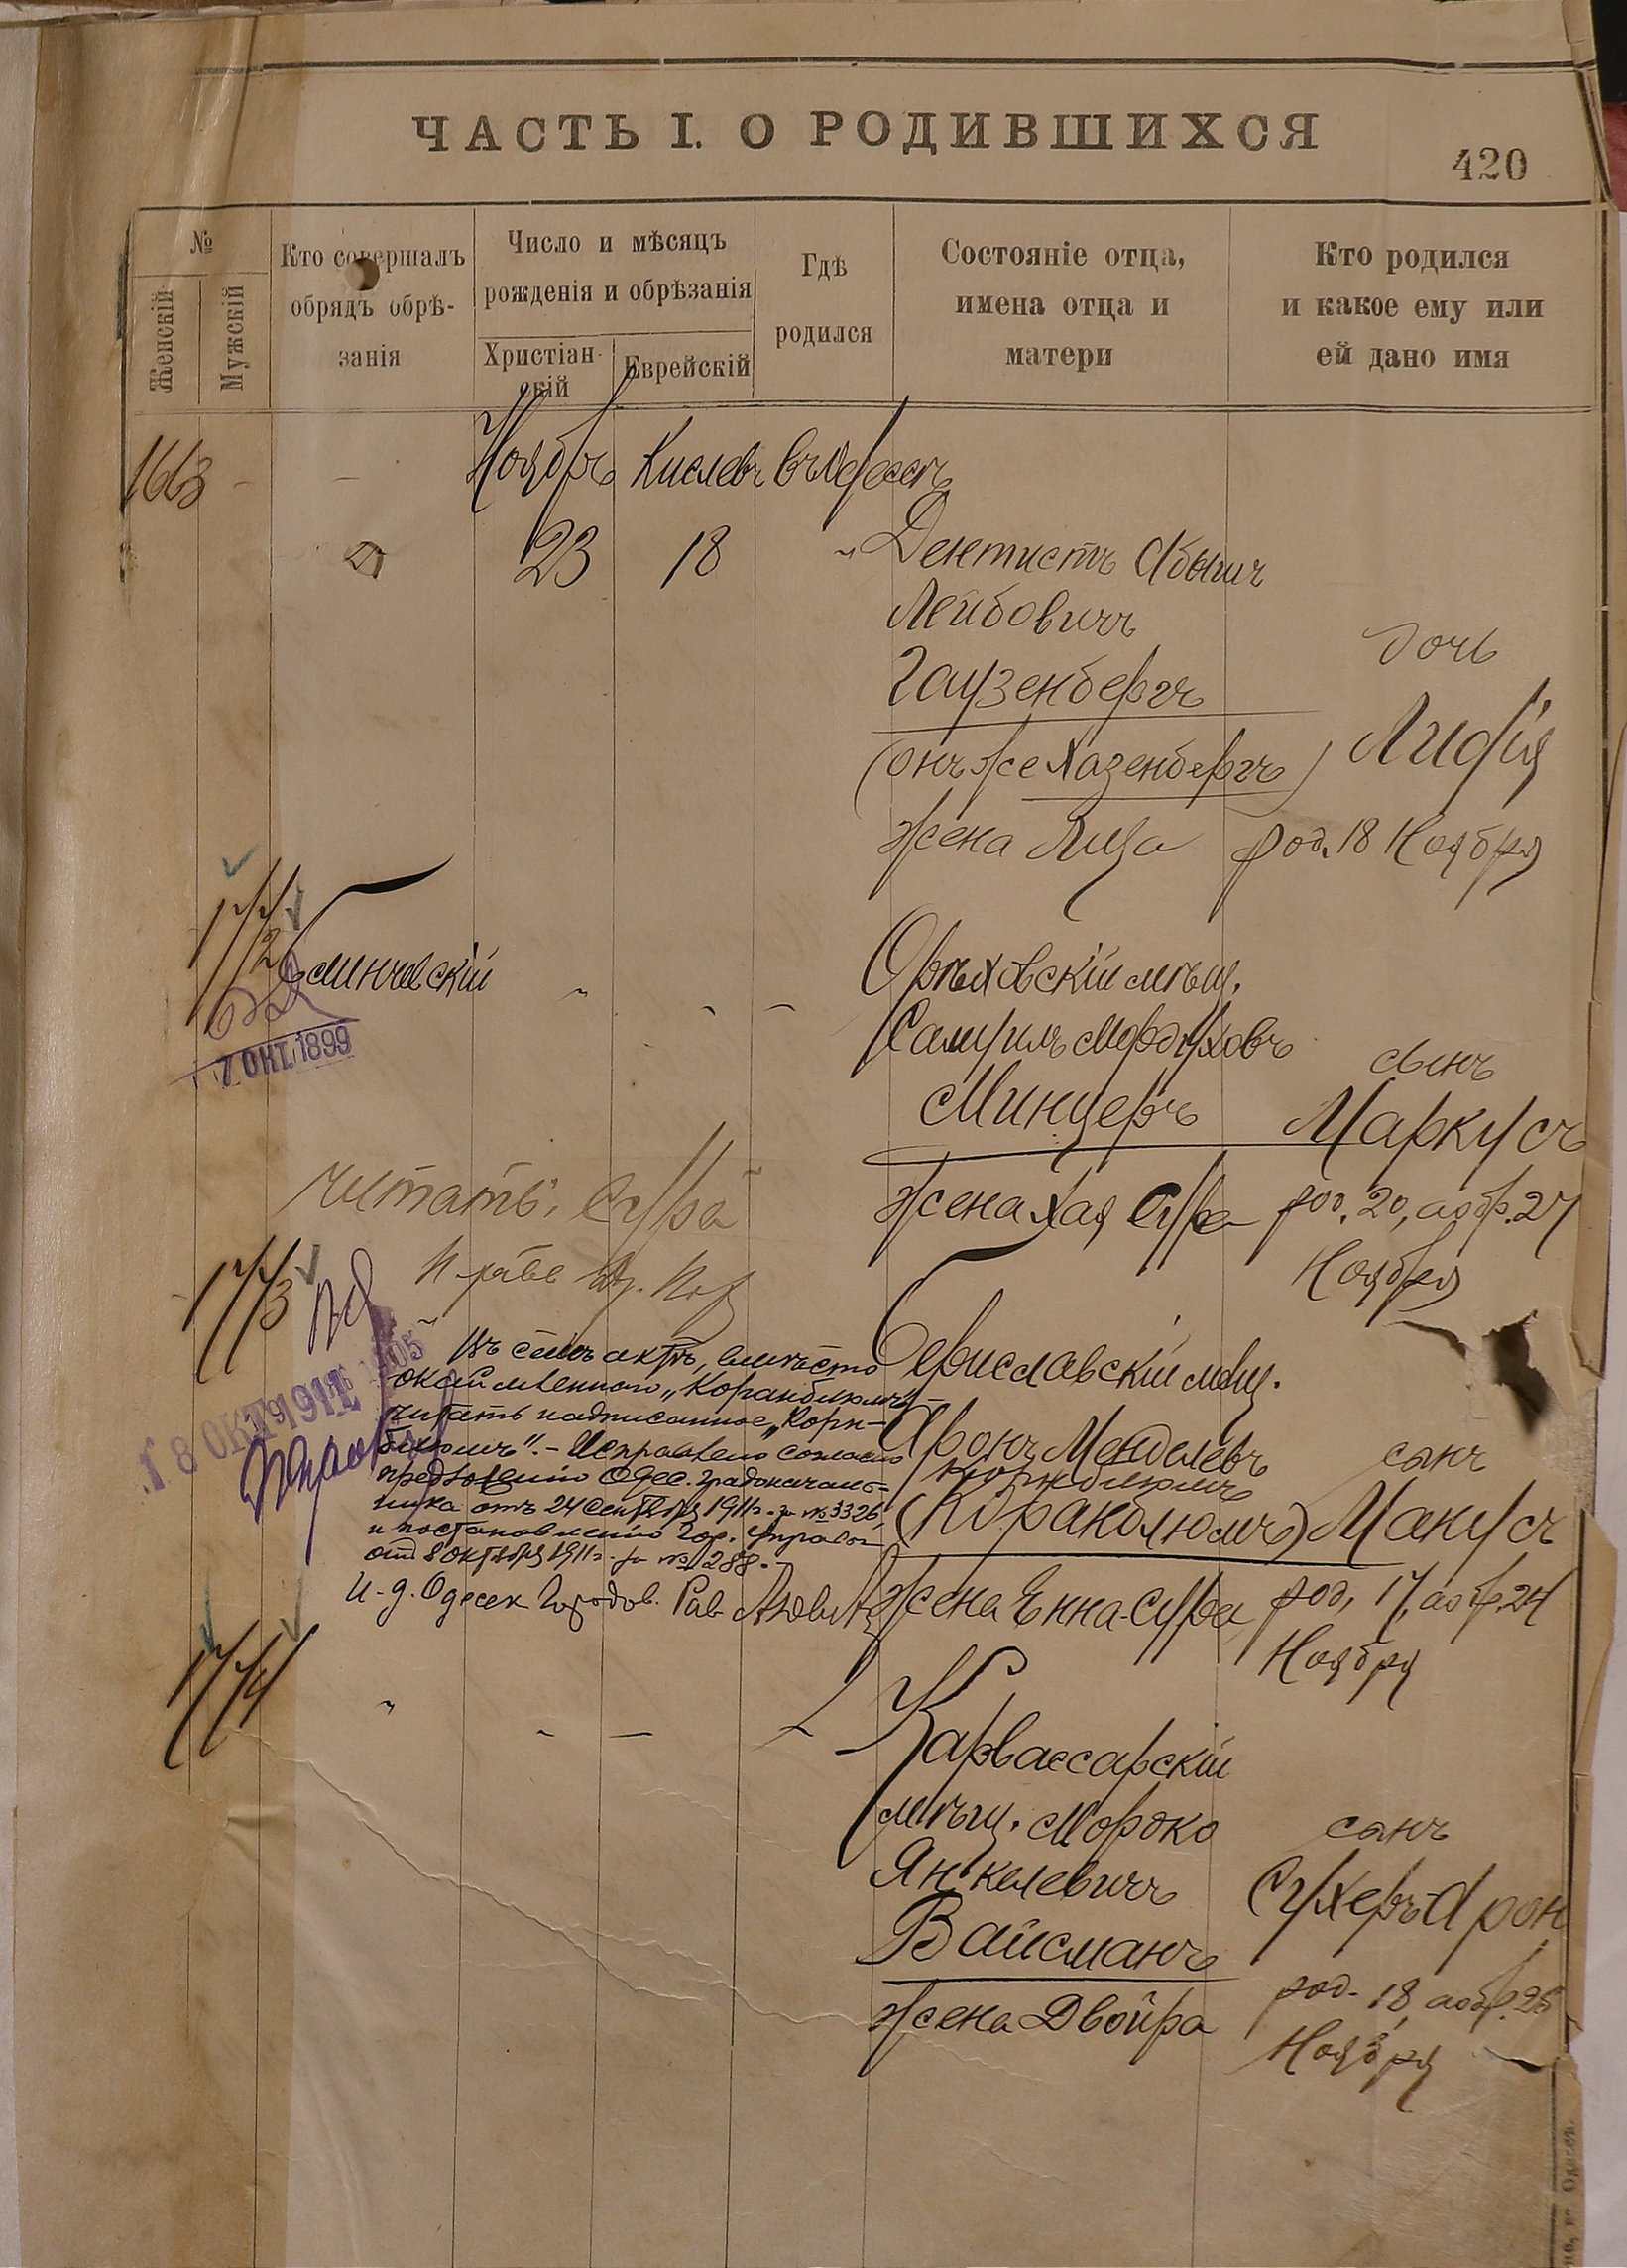 ЧАСТЬ I. О РОДИВШИХСЯ
420
№
Женскій
Мужскій
Кто совершалъ
обрядъ обрѣ-
занія
Число и мѣсяцъ
рожденія и обрѣзанія
Христіан-
скій
Еврейскій
Гдѣ
родился
Состояніе отца,
имена отца и
матери
Кто родился
и какое ему или
ей дано имя
1663 - - Ноябрь Кислевъ въ Одессѣ
23 18 " Дентистъ Абрамъ
Лейбовичъ
Гаузенбергъ
дочь
(онъ же Хазенбергъ)
Лидія
жена Лиза
род. 18 Ноября
1772
7 ОКТ. 1899
Орѣховскій мѣщ.
Самуилъ Мордуховъ
сынъ
Минцеръ
Маркусъ
читать: Сура
жена Хая Сура
род. 20, аобр. 27
Ноября
1773
Въ семъ актѣ, вмѣсто
"Коранблюмъ"
читать надписанное "Корн-
блюмъ". - Исправлено согласно
предложенію Одес. Градоначаль-
ника отъ 24 Сентября 1911 г. за № 3326,
и постановленію Гор. Управы
отъ 8 октября 1911 г. за № 1288. -
И. д. Одесск Городов. Рав.
18 ОКТ 1911
Бериславскій мѣщ.
Аронъ Менделевъ
сынъ
Корнблюмъ
(Коранблюмъ)
Макусъ
жена Енна-Сура
род. 17, аобр. 24
Ноября
1774
Карвассарскій
мѣщ. Мордко
сынъ
Янкелевичъ
Сухеръ-Арон
Вайсманъ
жена Двойра
род. 18, аобр. 25
Ноября